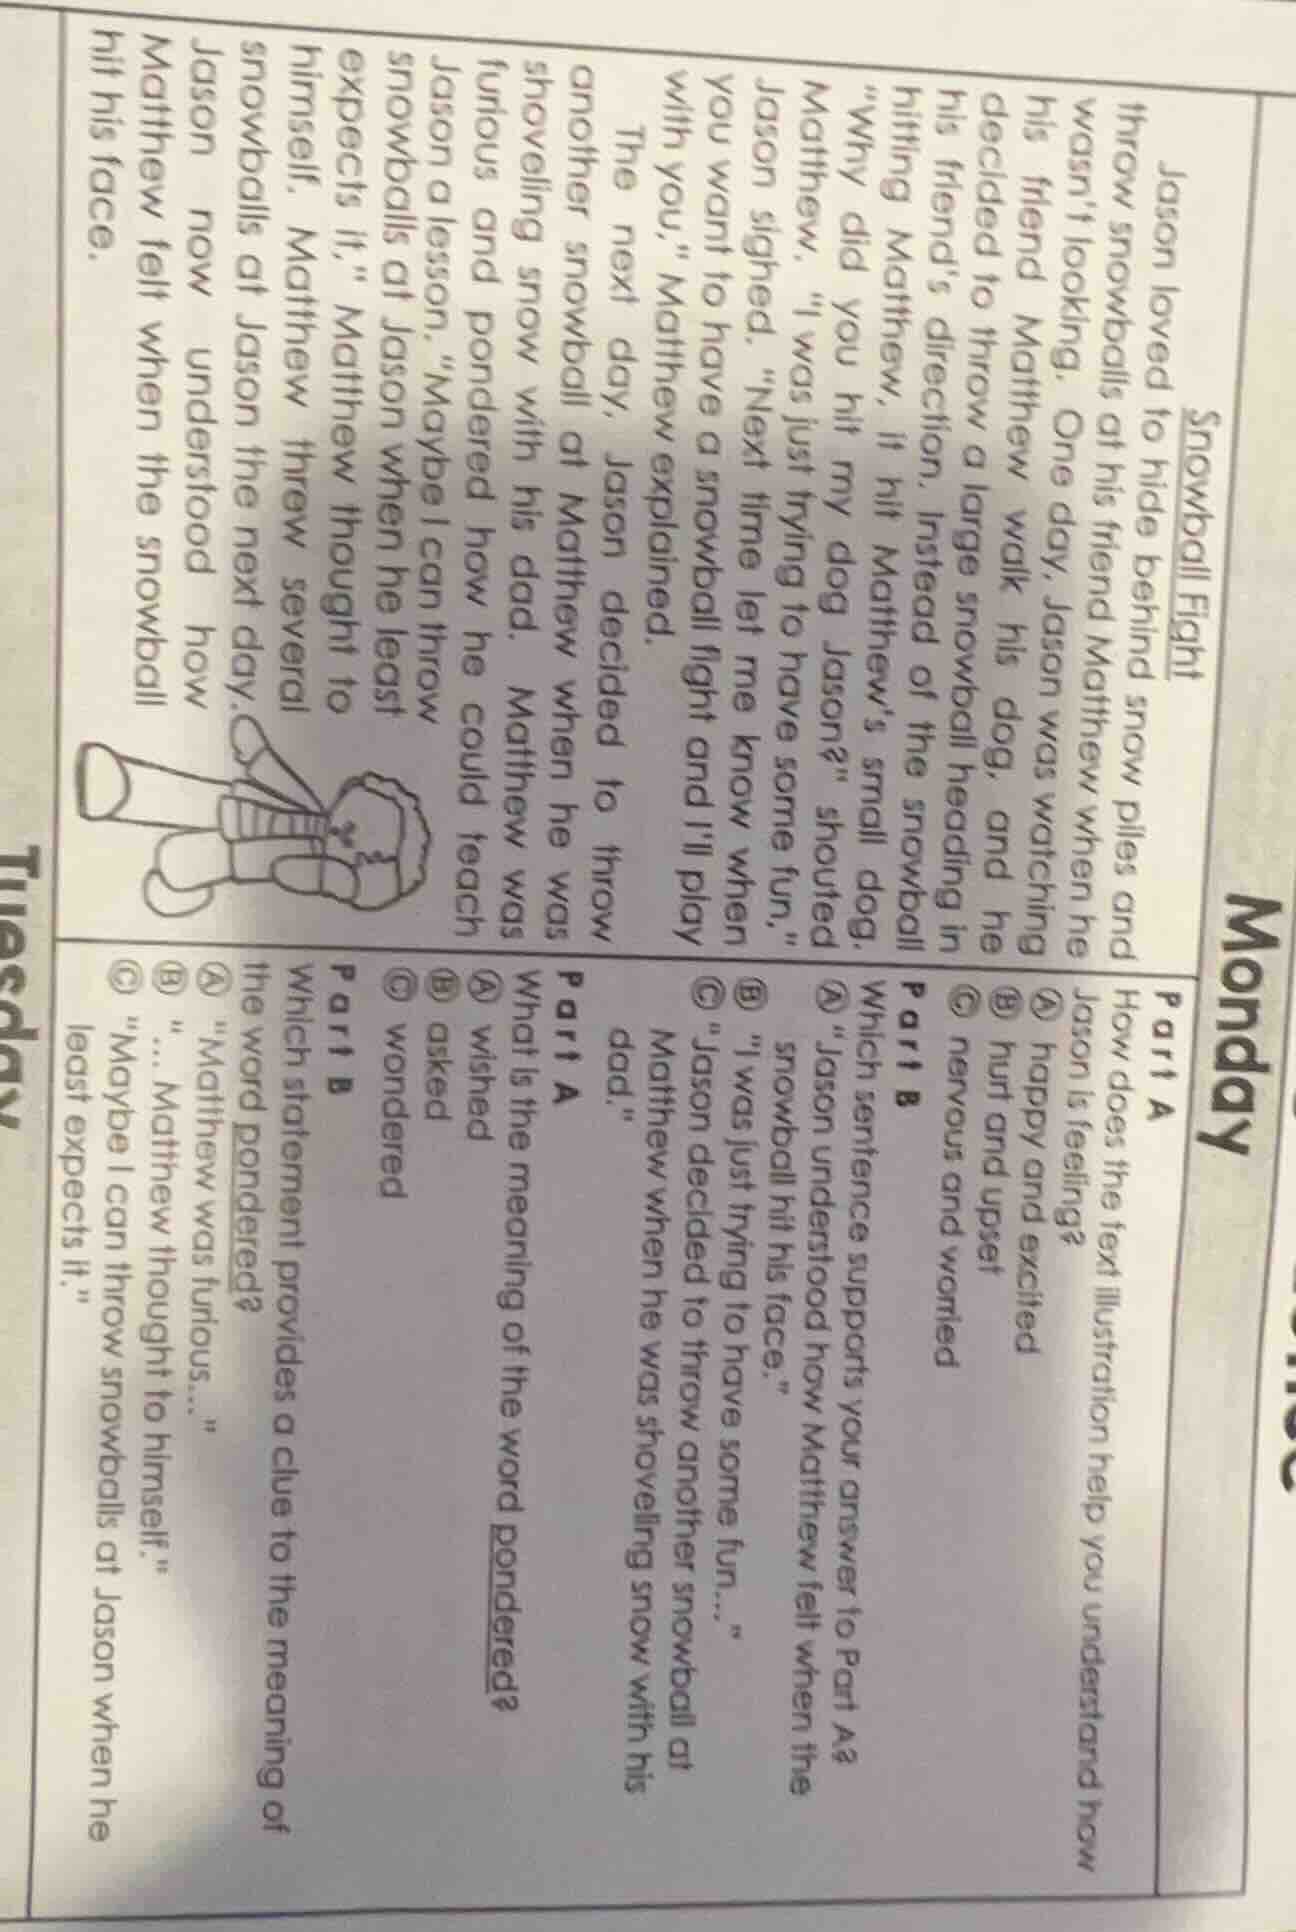 Monday
Snowball Fight
Jason loved to hide behind snow piles and
throw snowballs at his friend Matthew when he
wasn't looking. One day, Jason was watching
his friend Matthew walk his dog, and he
decided to throw a large snowball heading in
his friend's direction. Instead of the snowball
hitting Matthew, it hit Matthew's small dog.
"Why did you hit my dog Jason?" shouted
Matthew. "I was just trying to have some fun,"
Jason sighed. "Next time let me know when
you want to have a snowball fight and I'll play
with you," Matthew explained.
The next day, Jason decided to throw
another snowball at Matthew when he was
shoveling snow with his dad. Matthew was
furious and pondered how he could teach
Jason a lesson. "Maybe I can throw
snowballs at Jason when he least
expects it," Matthew thought to
himself. Matthew threw several
snowballs at Jason the next day.
Jason now understood how
Matthew felt when the snowball
hit his face.
Part A
How does the text illustration help you understand how
Jason is feeling?
Ⓐ happy and excited
Ⓑ hurt and upset
Ⓒ nervous and worried
Part B
Which sentence supports your answer to Part A?
Ⓐ "Jason understood how Matthew felt when the
snowball hit his face."
Ⓑ "I was just trying to have some fun..."
Ⓒ "Jason decided to throw another snowball at
Matthew when he was shoveling snow with his
dad."
Part A
What is the meaning of the word pondered?
Ⓐ wished
Ⓑ asked
Ⓒ wondered
Part B
Which statement provides a clue to the meaning of
the word pondered?
Ⓐ "Matthew was furious..."
Ⓑ "... Matthew thought to himself."
Ⓒ "Maybe I can throw snowballs at Jason when he
least expects it."
Tuesday